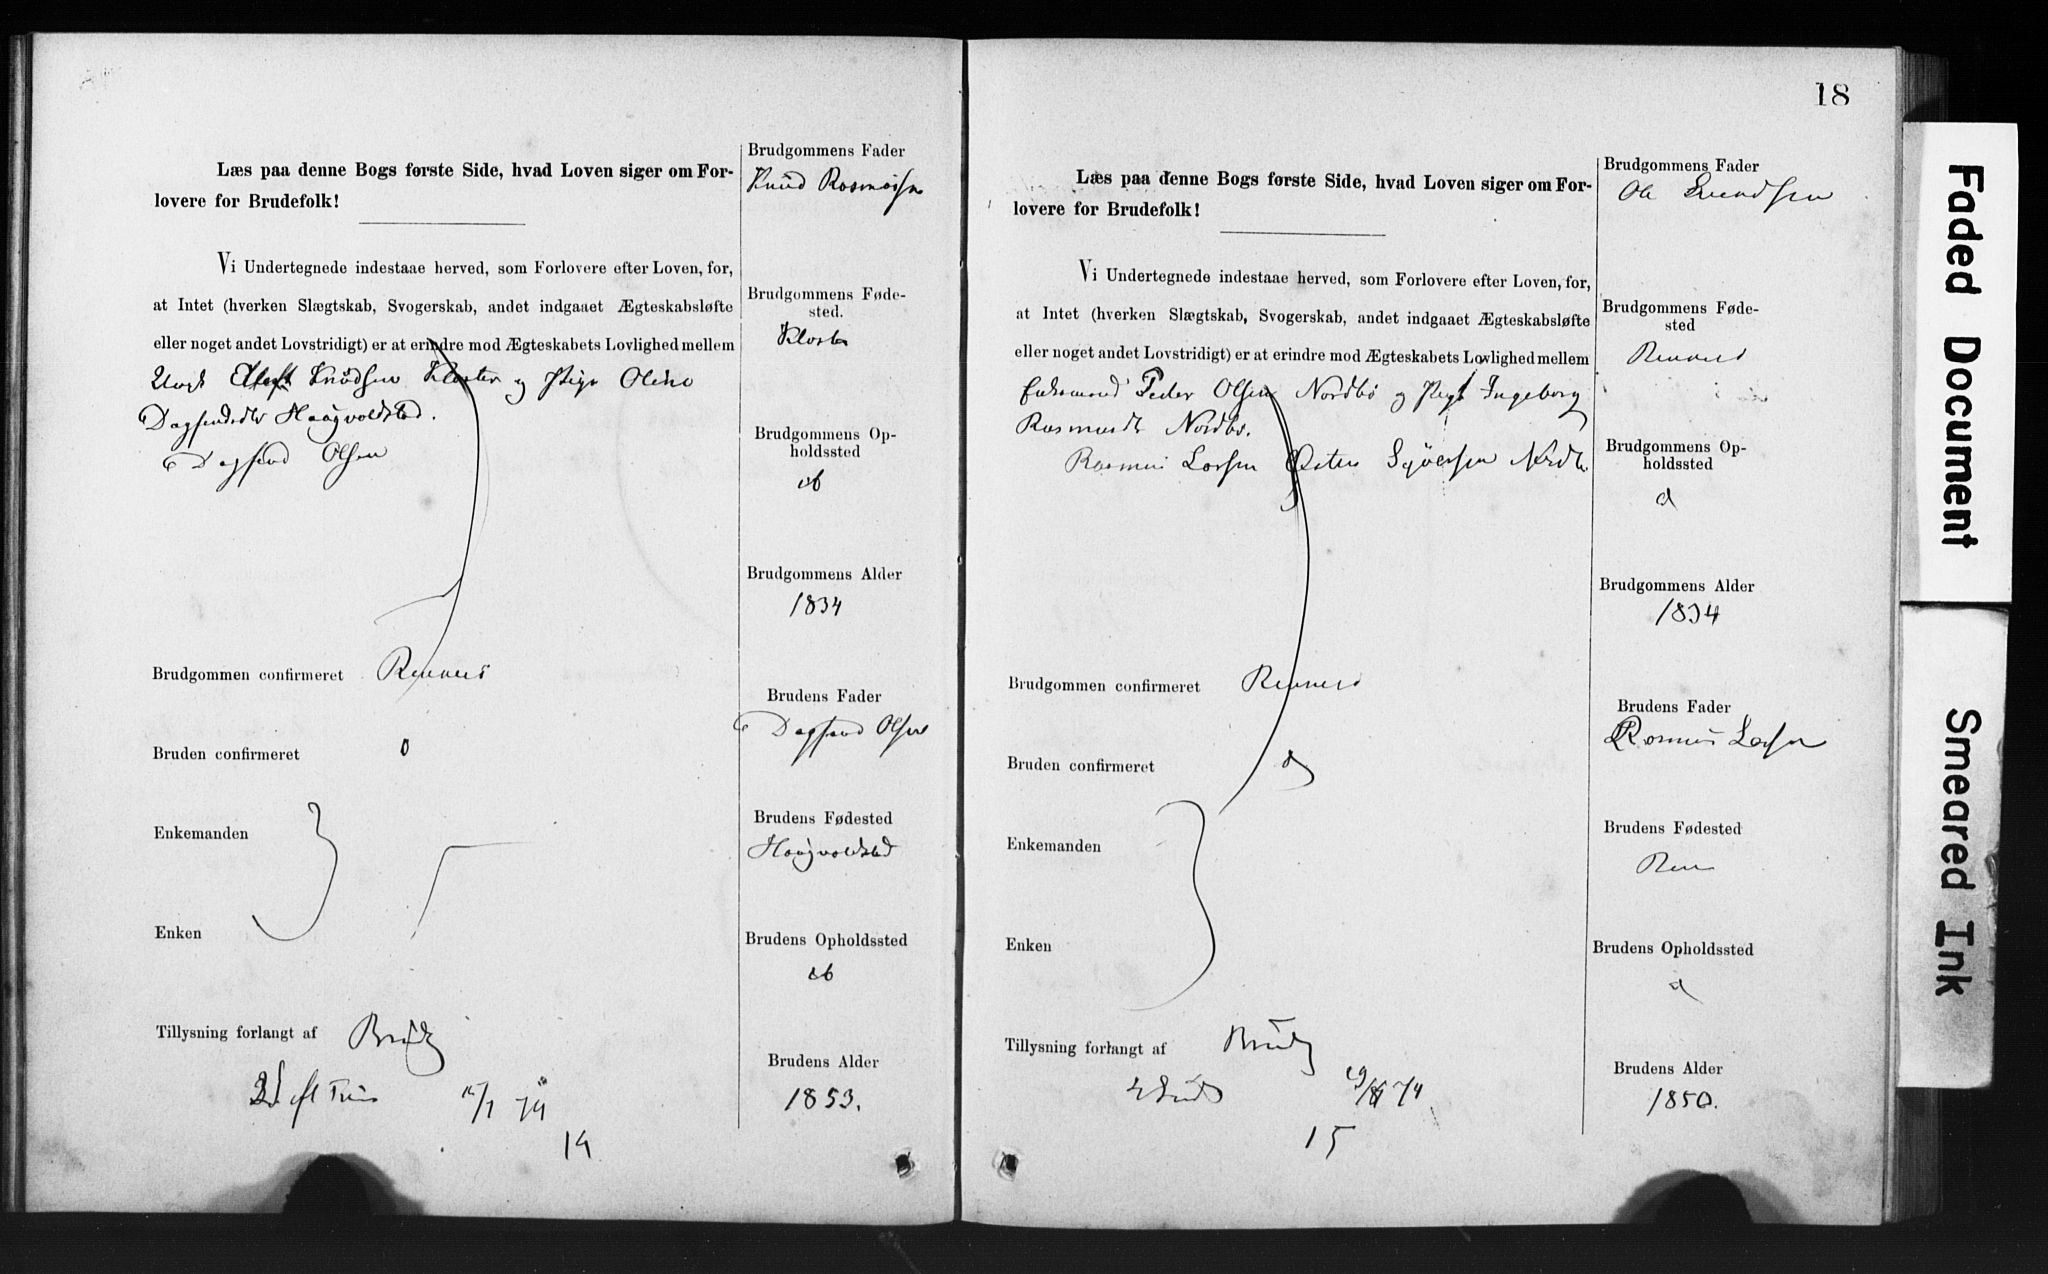 Læs paa denne Bogs første Side, hvad Loven siger om For-
lovere for Brudefolk!
Vi Undertegnede indestaae herved, som Forlovere efter Loven, for,
at Intet (hverken Slægtskab, Svogerskab, andet indgaaet Ægteskabsløfte
eller noget andet Lovstridigt) er at erindre mod Ægteskabets Lovlighed mellem
Ungk Knudsen Kloster og Pige Oline
Dagfinds Haagvoldstad.
Dagfind Olsen
Brudgommen confirmeret Rennesø
Bruden confirmeret
Enkemanden
Enken
Tillysning forlangt af
14
Brudgommens Fader
Knud Rasmusen
Brudgommens Føde-
sted.
Kloster
Brudgommens Op-
holdssted
Brudgommens Alder
1834
Brudens Fader
Dagfind Olsen
Brudens Fødested
Haagvoldstad
Brudens Opholdssted
Brudens Alder
1853.
18
Læs paa denne Bogs første Side, hvad Loven siger om For-
lovere for Brudefolk!
Vi Undertegnede indestaae herved, som Forlovere efter Loven, for,
at Intet (hverken Slægtskab, Svogerskab, andet indgaaet Ægteskabsløfte
eller noget andet Lovstridigt) er at erindre mod Ægteskabets Lovlighed mellem
Enkemand Peder Olsen Nordbø og Pige Ingeborg
Rasmusdt Nordbø.
Rasmus Larsen Østen Nordbø
Brudgommen confirmeret Rennesø
Bruden confirmeret d
Enkemanden
Enken
Tillysning forlangt af
15
Brudgommens Fader
Ole Svendsen
Brudgommens Føde-
sted
Rennesø
Brudgommens Op-
holdssted
d
Brudgommens Alder
1834
Brudens Fader
Rasmus Larsen
Brudens Fødested
Ren
Brudens Opholdssted
d
Brudens Alder
1850.
Faded Document
Smeared Ink